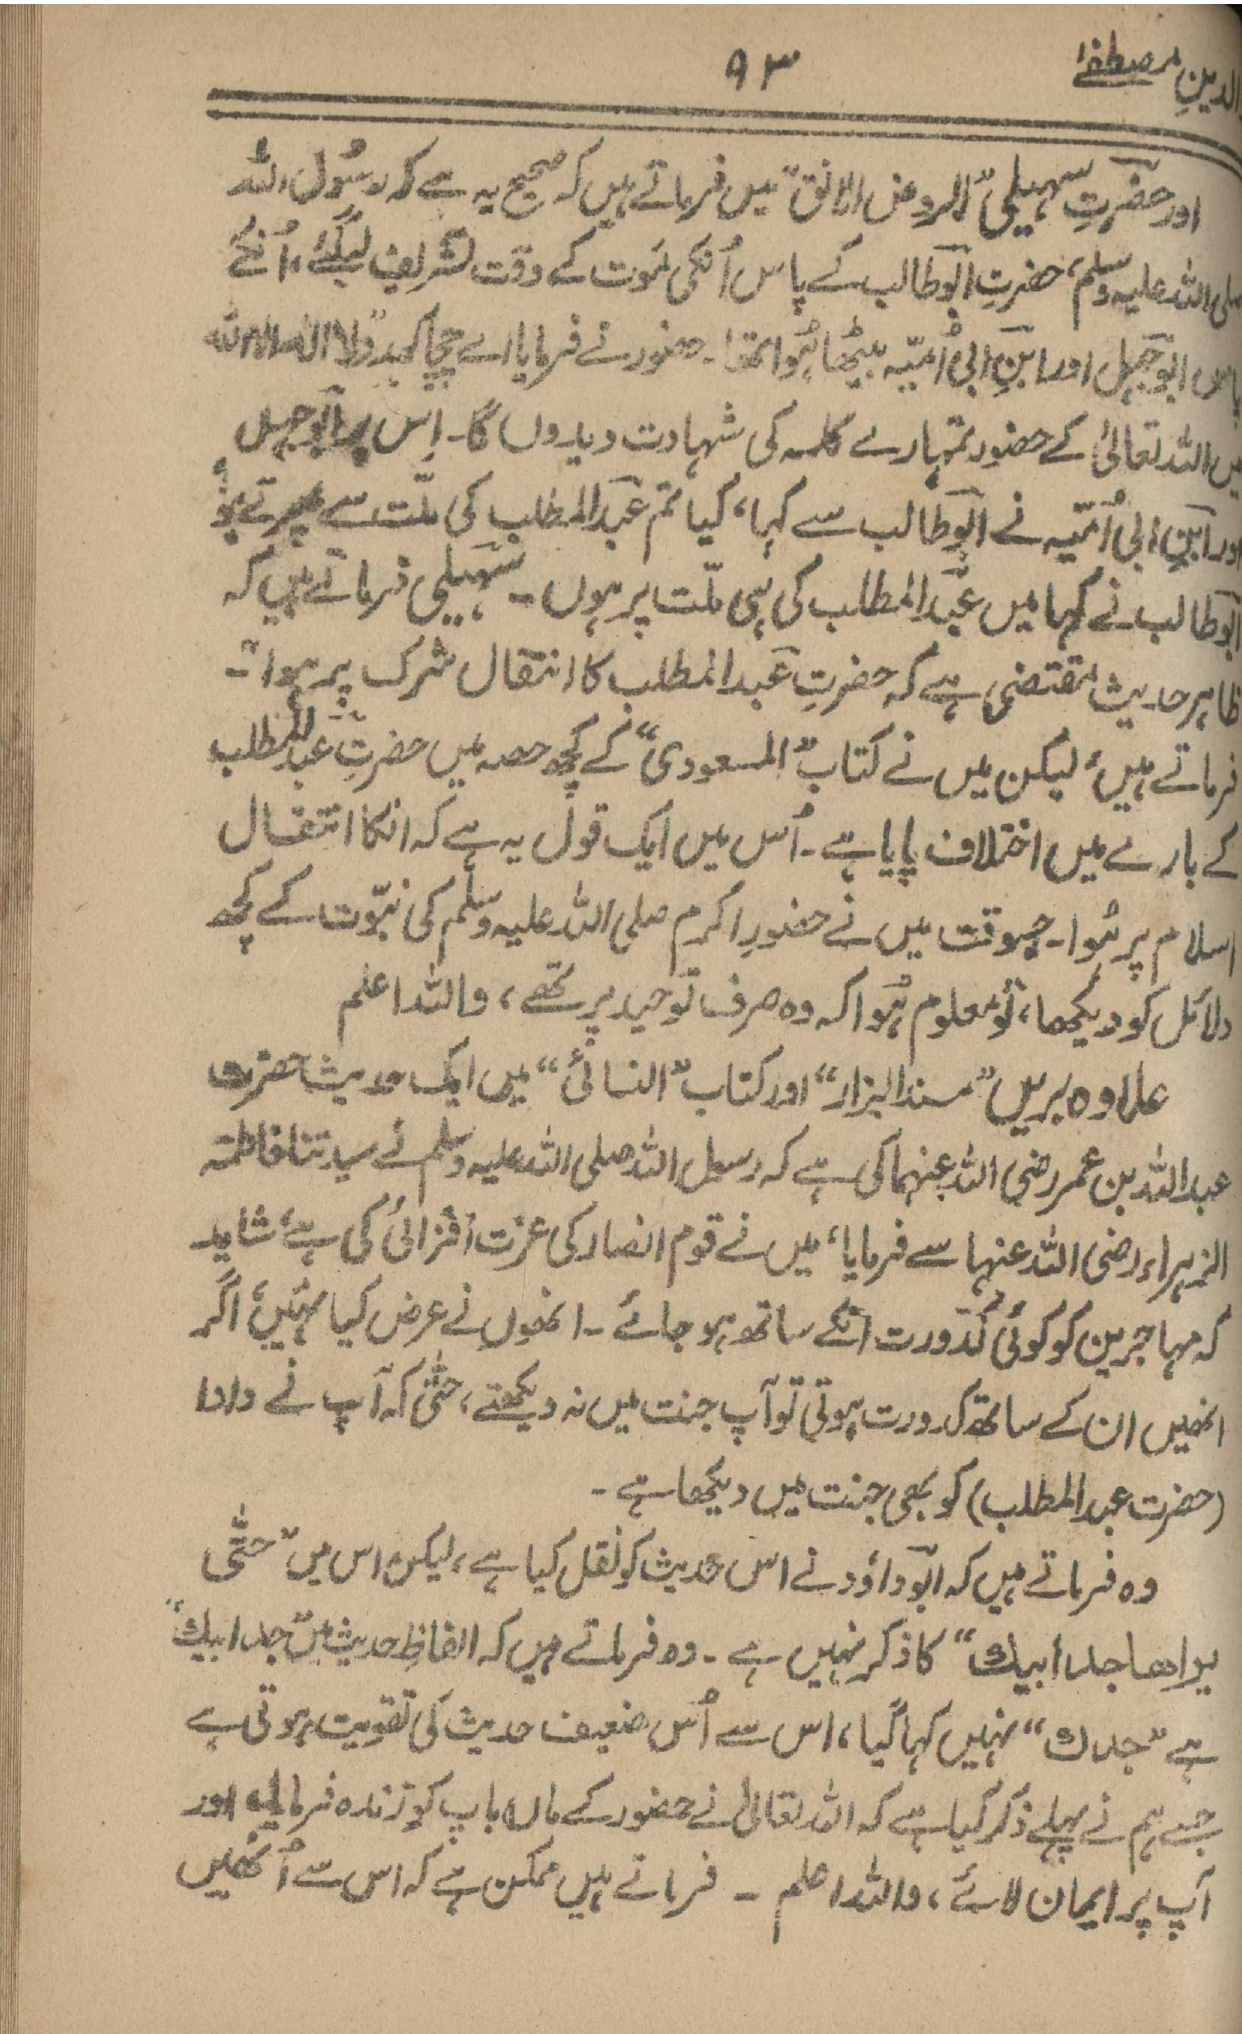 الدینِ مصطفےٰ ۹۳
اور حضرتِ سہیلی ”الروض الانق“ میں فرماتے ہیں کہ صحیح یہ ہے کہ رسُول اللہ
صلی اللہ علیہ وسلم، حضرتِ ابوطالب کے پاس اُنکی مَوت کے وقت تشریف لیگئے، اُنکے
پاس ابوجہل اور ابنِ ابی اُمیّہ بیٹھا ہُوا تھا۔ حضور نے فرمایا اے چچا کہدو لا الہ الا اللہ
میں اللہ تعالیٰ کے حضور تمہارے کلمہ کی شہادت دیدوں گا۔ اِس پر ابوجہل
اور ابنِ ابی اُمیّہ نے ابوطالب سے کہا، کیا تم عبدالمطلب کی ملّت سے پھرتے ہو؟
ابوطالب نے کہا میں عبدالمطلب کی ہی ملّت پر ہوں۔ سہیلی فرماتے ہیں کہ
ظاہر حدیث مقتضی ہے کہ حضرتِ عبدالمطلب کا انتقال شرک پر ہوا“۔
فرماتے ہیں، لیکن میں نے کتاب ”المسعودی“ کے کچھ حصہ میں حضرتِ عبدالمطلب
کے بارے میں اختلاف پایا ہے۔ اُس میں ایک قول یہ ہے کہ انکا انتقال
اسلام پر ہُوا۔ جسوقت میں نے حضورِ اکرم صلی اللہ علیہ وسلم کی نبوّت کے کچھ
دلائل کو دیکھا، تو معلوم ہُوا کہ وہ صرف توحید پر تھے، واللہ اعلم
علاوہ بریں ”مسند البزار“ اور کتاب ”النسائی“ میں ایک حدیث حضرت
عبداللہ بن عمر رضی اللہ عنہما کی ہے کہ رسول اللہ صلی اللہ علیہ وسلم نے سیدتنا فاطمتہ
الزہراء رضی اللہ عنہا سے فرمایا، میں نے قوم انصار کی عزت افزائی کی ہے، شاید
کہ مہاجرین کو کوئی کُدورت انکے ساتھ ہو جائے۔ انھوں نے عرض کیا نہیں، اگر
انھیں ان کے ساتھ کدورت ہوتی تو آپ جنت میں نہ دیکھتے، حتّٰی کہ آپ نے دادا
(حضرت عبدالمطلب) کو بھی جنت میں دیکھا ہے۔
وہ فرماتے ہیں کہ ابوداؤد نے اس حدیث کو نقل کیا ہے، لیکن اس میں ”حتّٰی
یراھا جد ابیك“ کا ذکر نہیں ہے۔ وہ فرماتے ہیں کہ الفاظِ حدیث میں ”جد ابیك“
ہے ”جدك“ نہیں کہا گیا، اس سے اُس ضعیف حدیث کی تقویت ہوتی ہے
جسے ہم نے پہلے ذکر کیا ہے کہ اللہ تعالیٰ نے حضور کے ماں باپ کو زندہ فرمایا، اور
آپ پر ایمان لائے، واللہ اعلم ۔ فرماتے ہیں ممکن ہے کہ اس سے اُنھیں